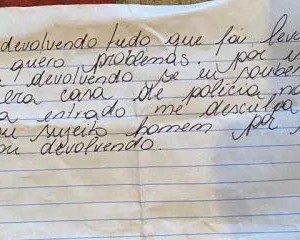 devolvendo tudo que foi leva
quero problemas. por i
devolvendo se eu soube
era casa de policia no
a entrado me desculpa
ou sujeito homem por
ou devolvendo.